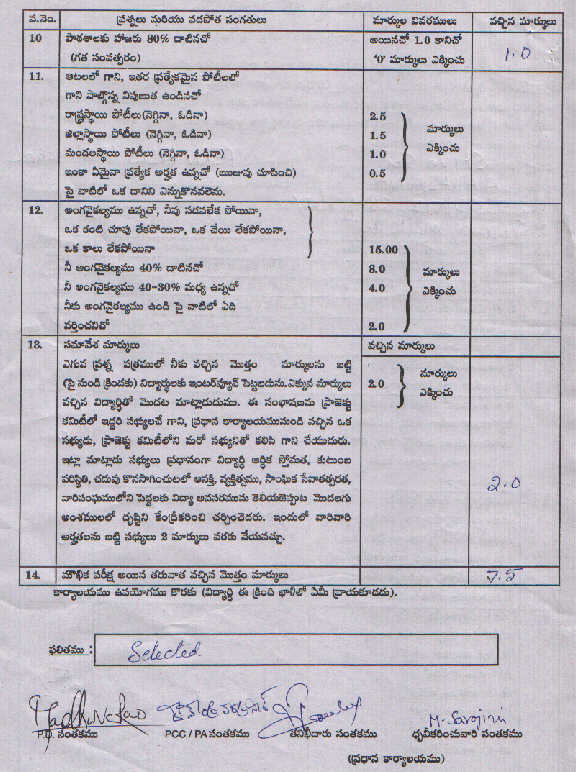 వ.నెం. ప్రశ్నలు మరియు వడపోత సంగతులు మార్కుల వివరములు వచ్చిన మార్కులు
10 పాఠశాలకు హాజరు 80% దాటినచో అయినచో 1.0 కానిచో
(గత సంవత్సరం) '0' మార్కులు ఎక్కించు 1.0
11. ఆటలలో గాని, ఇతర ప్రత్యేకమైన పోటీలలో
గాని పాల్గొన్న నిపుణుత ఉండినచో
రాష్ట్రస్థాయి పోటీలు(నెగ్గినా, ఓడినా) 2.5
జిల్లాస్థాయి పోటీలు (నెగ్గినా, ఓడినా) 1.5 మార్కులు
మండలస్థాయి పోటీలు (నెగ్గినా, ఓడినా) 1.0 ఎక్కించు
ఇంకా ఏమైనా ప్రత్యేక అర్హత ఉన్నచో (ఋజువు చూపించి) 0.5
పై వాటిలో ఒక దానిని ఎన్నుకొనవలెను.
12. అంగవైకల్యము ఉన్నచో, నీవు నడవలేక పోయినా,
ఒక కంటి చూపు లేకపోయినా, ఒక చేయి లేకపోయినా,
ఒక కాలు లేకపోయినా 15.00
నీ అంగవైకల్యము 40% దాటినచో 8.0 మార్కులు
నీ అంగవైకల్యము 40-30% మధ్య ఉన్నచో 4.0 ఎక్కించు
నీకు అంగవైకల్యము ఉండి పై వాటిలో ఏది
వర్తించనిచో 2.0
13. సమావేశ మార్కులు వచ్చిన మార్కులు
ఎగువ ప్రశ్న పత్రములో నీకు వచ్చిన మొత్తం మార్కులను బట్టి మార్కులు
(పై నుండి క్రిందకు) విద్యార్థులకు ఇంటర్వ్యూస్ పెట్టబడును.ఎక్కువ మార్కులు 2.0 ఎక్కించు
వచ్చిన విద్యార్థితో మొదట మాట్లాడుదుము. ఈ సంభాషణను ప్రాజెక్టు
కమిటీలో ఇద్దరి సభ్యులచే గాని, ప్రధాన కార్యాలయమునుండి వచ్చిన ఒక
సభ్యుడు, ప్రాజెక్టు కమిటీలోని మరో సభ్యునితో కలిసి గాని చేయుదురు.
ఇట్లా మాట్లాడు సభ్యులు ప్రధానంగా విద్యార్థి ఆర్థిక స్తోమత, కుటుంబ
పరిస్థితి, చదువు కొనసాగించుటలో ఆసక్తి, వ్యక్తిత్వము, సాంఘిక సేవాతత్పరత, 2.0
వారిసంఘములోని పెద్దలకు విద్యా అవసరమును తెలియజెప్పుట మొదలగు
అంశములలో దృష్టిని కేంద్రీకరించి చర్చించెదరు. ఇందులో వారివారి
అర్హతలను బట్టి సభ్యులు 2 మార్కులు వరకు వేయవచ్చు.
14. మౌఖిక పరీక్ష అయిన తరువాత వచ్చిన మొత్తం మార్కులు 7.5
కార్యాలయము ఉపయోగము కొరకు (విద్యార్థి ఈ క్రింది ఖాళీలో ఏమీ వ్రాయకూడదు).
ఫలితము : Selected
M. Sarojini
P.D. సంతకము PCC / PA సంతకము తనిఖీదారు సంతకము ధృవీకరించువారి సంతకము
(ప్రధాన కార్యాలయము)